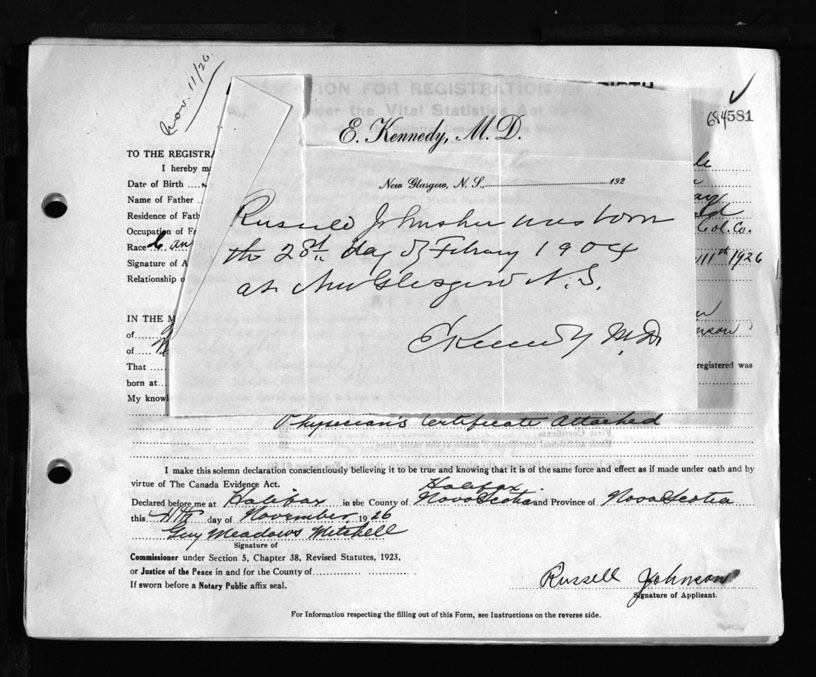 Nov. 11/26
ION FOR REGISTRATION BIRTH
der the Vital Statistics Act
684581
E. Kennedy, M. D.
New Glasgow, N. S., 192
Russell Johnston was born
the 28th day of Febuary 1904
at New Glasgow N. S.
E Kennedy M.D.
TO THE REGISTRA
I hereby m
Date of Birth
Name of Father
Residence of Fath
Occupation of F Col. Co.
Race
Signature of A 11th 1926
Relationship o
IN THE M
of
of nson
That registered was
born at
My knowl
Physician's Certificate Attached
I make this solemn declaration conscientiously believing it to be true and knowing that it is of the same force and effect as if made under oath and by
virtue of The Canada Evidence Act.
Halifax
Declared before me at Halifax in the County of Nova Scotia and Province of Nova Scotia
this 11th day of November 1926
Guy Meadows Mitchell
Signature of
Commissioner under Section 5, Chapter 38, Revised Statutes, 1923,
or Justice of the Peace in and for the County of
If sworn before a Notary Public affix seal.
Russell Johnson
Signature of Applicant.
For Information respecting the filling out of this Form, see Instructions on the reverse side.